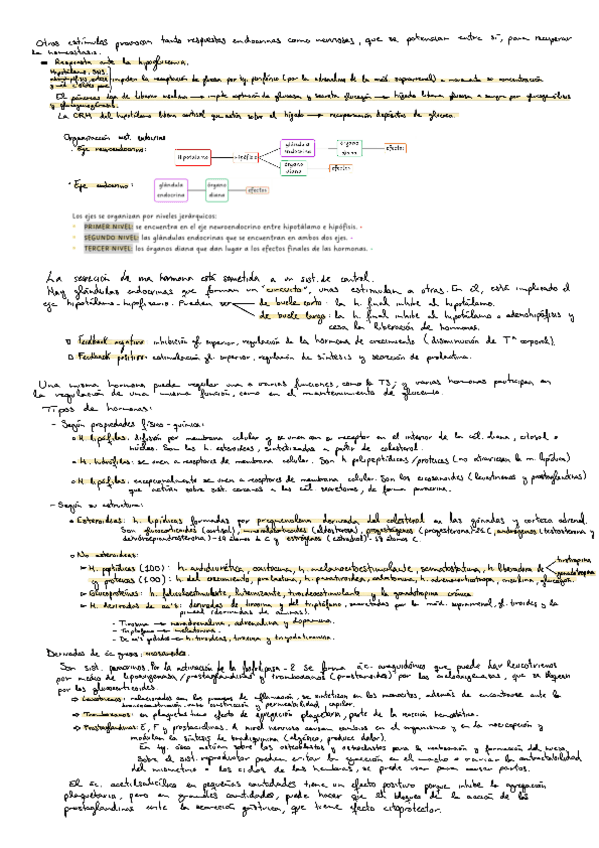 Otros estímulos provocan tanto respuestas endocrinas como nerviosas, que se potencian entre sí, para recuperar
la homeostasis.
Respuesta ante la hipoglucemia.
Hipotálamo, SNS,
impiden la recaptación de glucosa por tej. periférico (por la adrenalina de la méd. suprarrenal)
El páncreas deja de liberar insulina → impide captación de glucosa y secreta glucagón → hígado libera glucosa a sangre por glucogenólisis
y gluconeogénesis.
La CRH del hipotálamo libera cortisol que actúa sobre el hígado → recuperación depósitos de glucosa.
Organización sist. endocrino
- Eje neuroendocrino:
Hipotálamo
hipófisis
glándula
endocrina
órgano
diana
efectos
órgano
diana
efectos
Eje endocrino:
glándula
endocrina
órgano
diana
efectos
Los ejes se organizan por niveles jerárquicos:
PRIMER NIVEL: se encuentra en el eje neuroendocrino entre hipotálamo e hipófisis.
SEGUNDO NIVEL: las glándulas endocrinas que se encuentran en ambos dos ejes.
TERCER NIVEL: los órganos diana que dan lugar a los efectos finales de las hormonas.
La secreción de una hormona está sometida a un sist. de control.
Hay glándulas endocrinas que forman un "circuito", unas estimulan a otras. En él, está implicado el
eje hipotálamo-hipofisario. Pueden ser
de bucle corto: la h. final inhibe al hipotálamo.
de bucle largo: la h. final inhibe al hipotálamo o adenohipófisis y
cesa la liberación de hormonas.
Feedback negativo: inhibición gl. superior, regulación de la hormona de crecimiento (disminución de Tª corporal).
Feedback positivo: estimulación gl. superior, regulación de síntesis y secreción de prolactina.
Una misma hormona puede regular una a varias funciones, como la T3; y varias hormonas participan en
la regulación de una misma función, como en el mantenimiento de glucemia.
Tipos de hormonas:
- Según propiedades físico-químicas:
H. lipófilas: difusión por membrana celular y se unen con su receptor en el interior de la cél. diana, citosol o
núcleo. Son las h. esteroideas, sintetizadas a partir de colesterol.
H. hidrófilas: se unen a receptores de membrana celular. Son h. polipeptídicas/proteicas (no atraviesan la m. lipídica)
H. lipófilas, excepcionalmente se unen a receptores de membrana celular. Son los eicosanoides (leucotrienos y prostaglandinas)
que actúan sobre cercanas a las cél. secretoras, de forma paracrina.
- Según su estructura:
Esteroideas: h. lipídicas formadas por pregnenolona derivada del colesterol en las gónadas y corteza adrenal.
Son glucocorticoides (cortisol), mineralocorticoides (aldosterona), progestágenos (progesterona)-21C, andrógenos (testosterona y
dehidroepiandrosterona)-19 átomos de C y estrógenos (estradiol)-18 átomos C.
No esteroideas:
H. peptídicas (100): h. antidiurética, oxitocina, h. melanocitoestimulante, somatostatina, h. liberadora de
tirotropina
gonadotropina
y proteicas (100): h. del crecimiento, prolactina, h. paratiroidea, calcitonina, h. adrenocorticotropa, insulina, glucagón.
Glucoproteínas: h. foliculoestimulante, luteinizante, tiroideoestimulante y la gonadotropina coriónica
H. derivadas de aa's: derivadas de tirosina y del triptófano, secretadas por la méd. suprarrenal, gl. tiroides y la
pineal (derivadas de aminas).
- Tirosina → noradrenalina, adrenalina y dopamina.
- Triptófano → melatonina.
- De aa's yodados → h. tiroideas, tiroxina y triyodotironina.
Derivados de ác. grasos: eicosanoides.
Son sist. paracrinos. Por la activación de la fosfolipasa-2 se forma ác. araquidónico que puede dar leucotrienos
por medio de lipooxigenasas/prostaglandinas y tromboxanos (prostanoides) por las ciclooxigenasas, que se bloquean
por los glucocorticoides.
Leucotrienos: relacionados con los procesos de inflamación, se sintetizan en los monocitos, además de encontrarse ante la
broncoconstricción, vasoconstricción y permeabilidad capilar.
Tromboxanos: en plaquetas tiene efecto de agregación plaquetaria, parte de la reacción hemostática.
Prostaglandinas: E, F y prostaciclinas. A nivel nervioso causan cambios en el organismo y en la nocicepción y
modulan la síntesis de bradiquinina (algésico, produce dolor).
En tej. óseo actúan sobre los osteoblastos y osteoclastos para la reabsorción y formación del hueso.
Sobre el sist. reproductor pueden evitar la en el macho o variar la contractilidad
del miometrio o los ciclos de las hembras, se puede usar para causar partos.
El ác. acetilsalicílico en pequeñas cantidades tiene un efecto positivo porque inhibe la agregación
plaquetaria, pero en grandes cantidades, puede hacer que se bloquee la acción de las
prostaglandinas ante la secreción gástrica, que tiene efecto citoprotector.